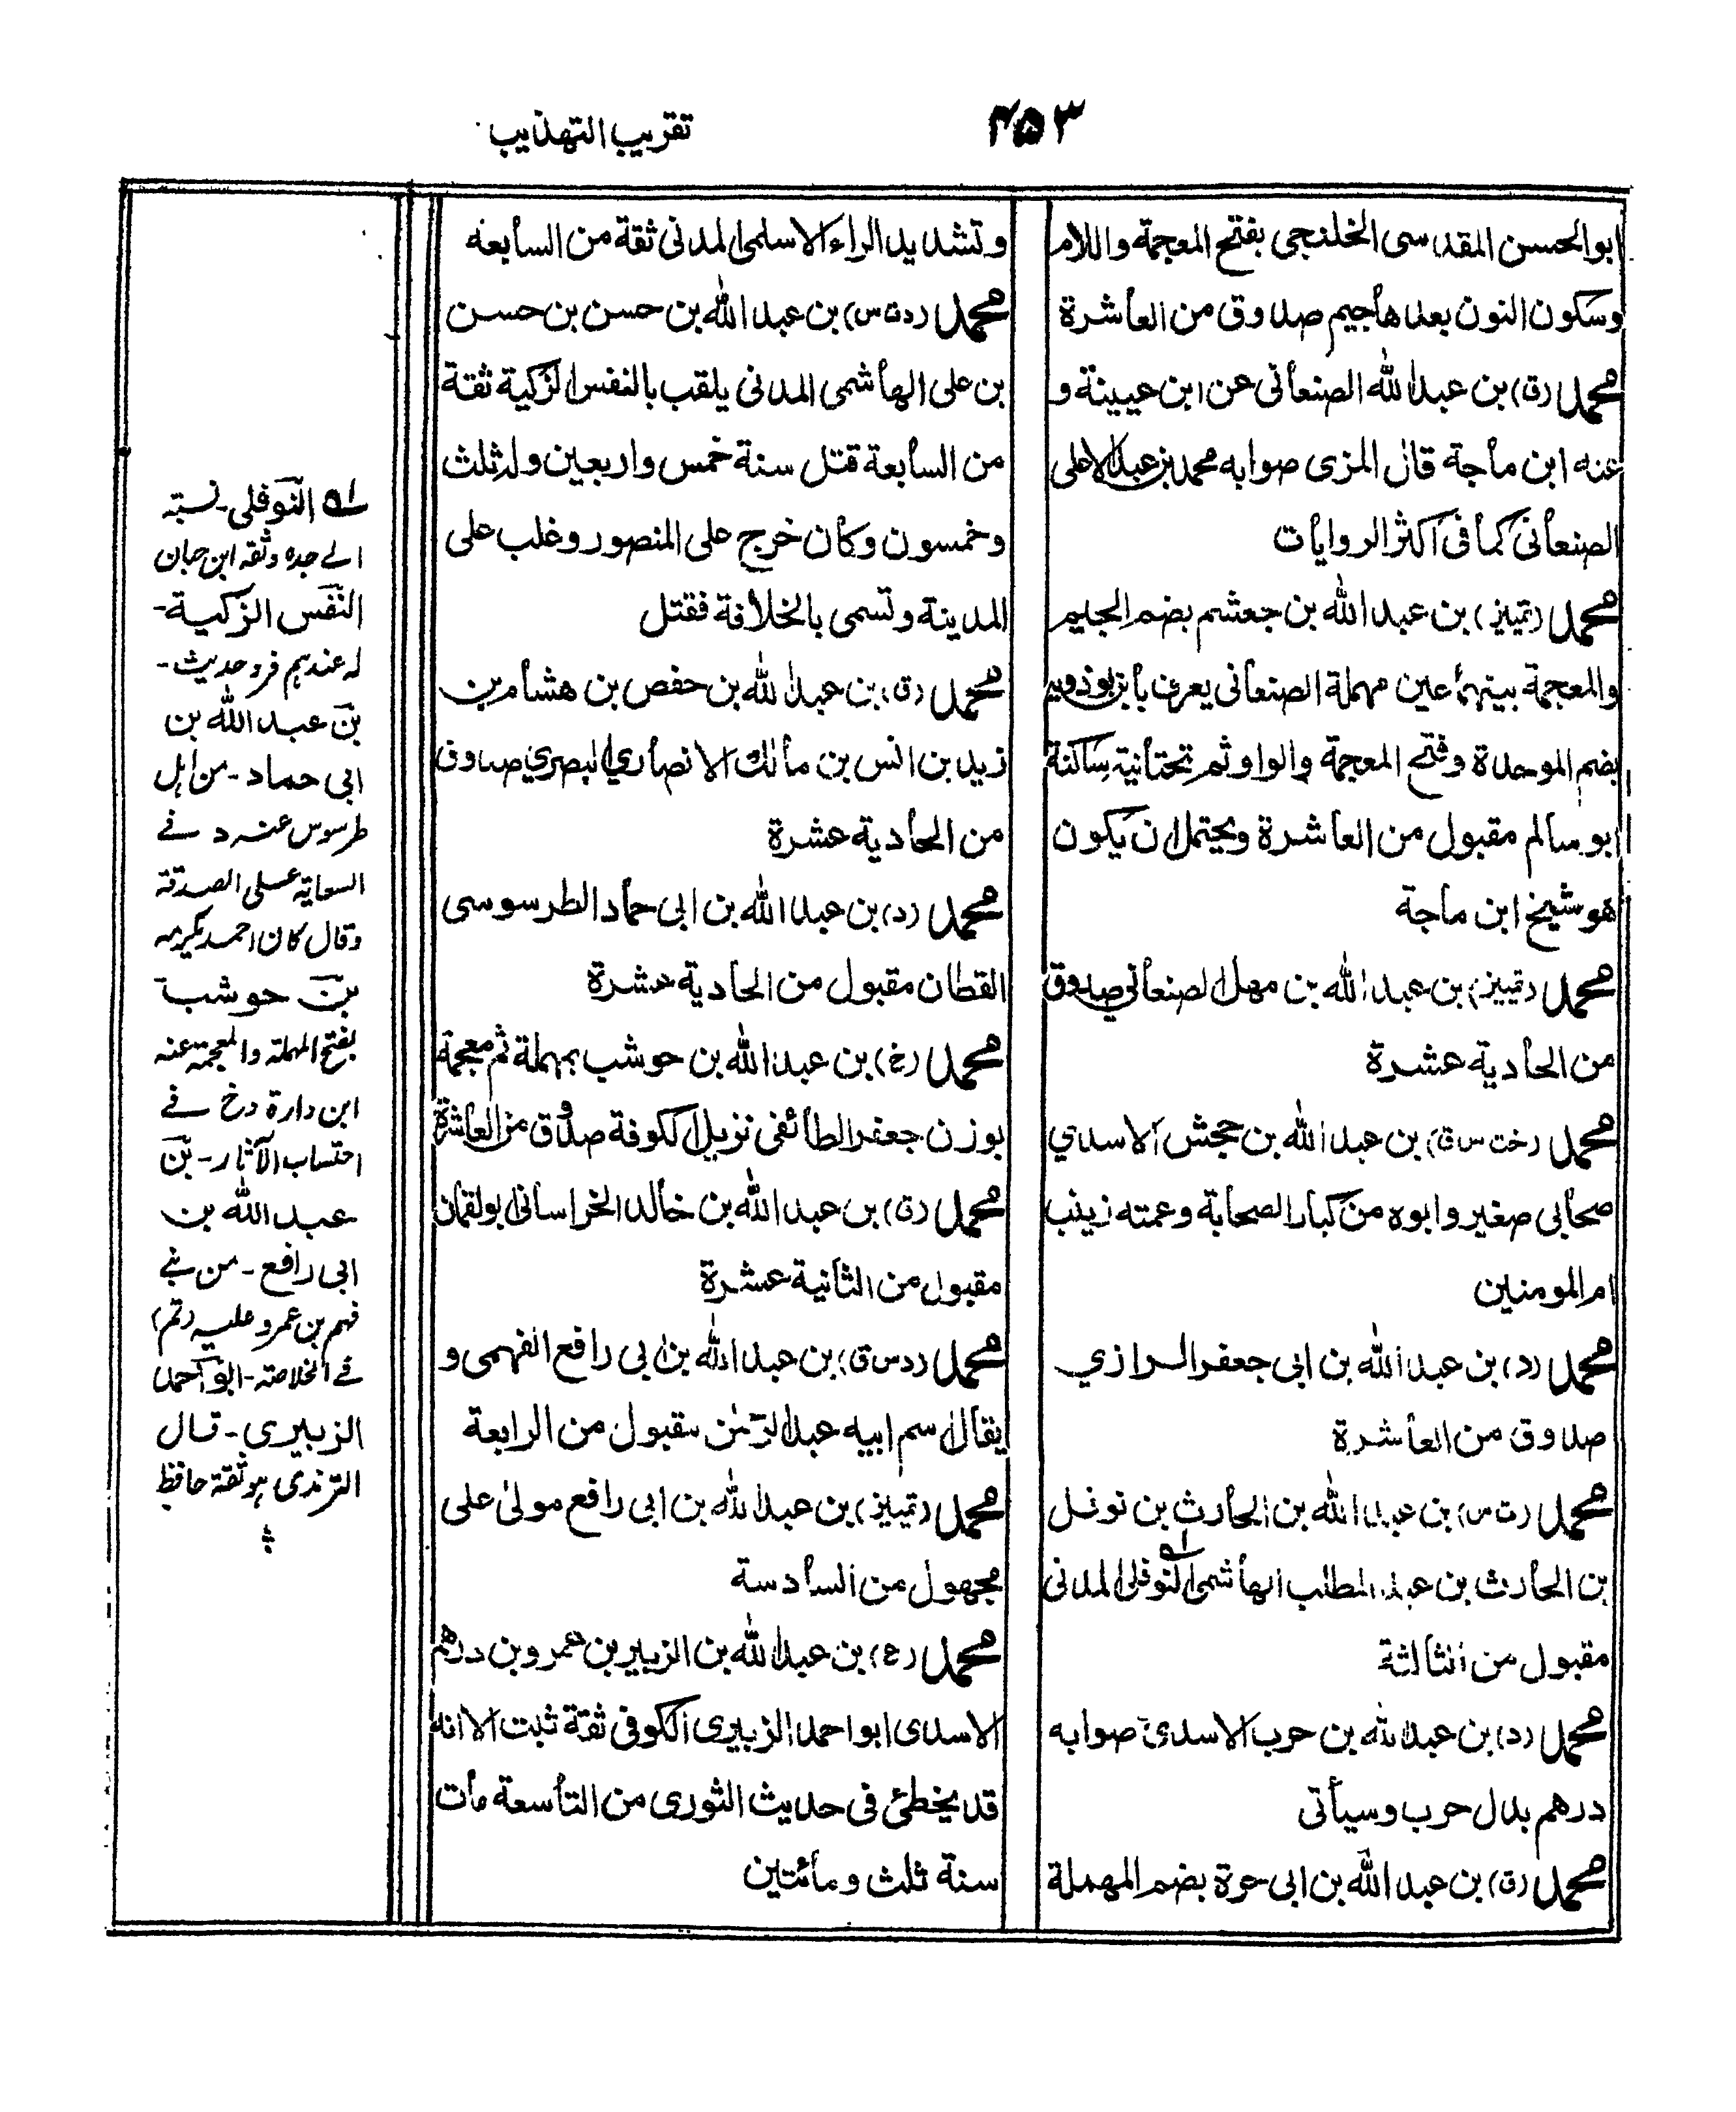 ۴۵۳
تقريب التهذيب
ابوالحسن المقدسى الخلنجى بفتح المعجمة واللام
وسكون النون بعدها جيم صدوق من العاشرة
محمد (ق) بن عبدالله الصنعانى عن ابن عيينة و
عنه ابن ماجة قال المزى صوابه محمد بن عبدالاعلى
الصنعانى كما فى اكثر الروايات
محمد (تمييز) بن عبدالله بن جعشم بضم الجيم
والمعجمة بينهما عين مهملة الصنعانى يعرف بابن بوذويه
بضم الموحدة وفتح المعجمة والواو ثم تحتانية ساكنة
ابو سالم مقبول من العاشرة ويحتمل ان يكون
هو شيخ ابن ماجة
محمد (تمييز) بن عبدالله بن مهل الصنعانى صدوق
من الحادية عشرة
محمد (خت س ق) بن عبدالله بن جحش الاسدي
صحابى صغير وابوه من كبار الصحابة وعمته زينب
ام المومنين
محمد (د) بن عبدالله بن ابى جعفر الرازي
صدوق من العاشرة
محمد (ت س) بن عبدالله بن الحارث بن نوفل
بن الحارث بن عبدالمطلب الهاشمى النوفلى المدنى
مقبول من الثالثة
محمد (د) بن عبدالله بن حرب الاسدى صوابه
درهم بدل حرب وسيأتى
محمد (ق) بن عبدالله بن ابى حرة بضم المهملة
وتشديد الراء الاسلمى المدنى ثقة من السابعه
محمد (د ت س) بن عبدالله بن حسن بن حسن
بن على الهاشمى المدنى يلقب بالنفس الزكية ثقة
من السابعة قتل سنة خمس واربعين وله ثلث
وخمسون وكان خرج على المنصور وغلب على
المدينة وتسمى بالخلافة فقتل
محمد (ق) بن عبدالله بن حفص بن هشام بن
زيد بن انس بن مالك الانصاري البصري صدوق
من الحادية عشرة
محمد (د) بن عبدالله بن ابى حماد الطرسوسى
القطان مقبول من الحادية عشرة
محمد (خ) بن عبدالله بن حوشب بمهملة ثم معجمة
بوزن جعفر الطائفى نزيل الكوفة صدوق من العاشرة
محمد (ق) بن عبدالله بن خالد الخراسانى ابولقمان
مقبول من الثانية عشرة
محمد (د س ق) بن عبدالله بن ابى رافع الفهمى و
يقال اسم ابيه عبدالرحمن مقبول من الرابعة
محمد (تمييز) بن عبدالله بن ابى رافع مولى على
مجهول من السادسة
محمد (ع) بن عبدالله بن الزبير بن عمرو بن درهم
الاسدى ابو احمد الزبيرى الكوفى ثقة ثبت الا انه
قد يخطئ فى حديث الثورى من التاسعة مات
سنة ثلث ومائتين
له النوفلى۔ نسبة
الے جده وثقه ابن حبان
النفس الزكية۔
له عندهم فرد حديث۔
بن عبد الله بن
ابى حماد۔ من اهل
طرسوس عنه د فے
السعاية على الصدقة
وقال كان احمد يكرمه
بن حوشب
بفتح المهملة والمعجمة عنه
ابن دارة و خ فے
احتساب الآثار۔ بن
عبد الله بن
ابى رافع۔ من بنے
فهم بن عمرو عليه (تم)
فے الخلاصة۔ ابو احمد
الزبيرى۔ قال
الترمذى هو ثقة حافظ